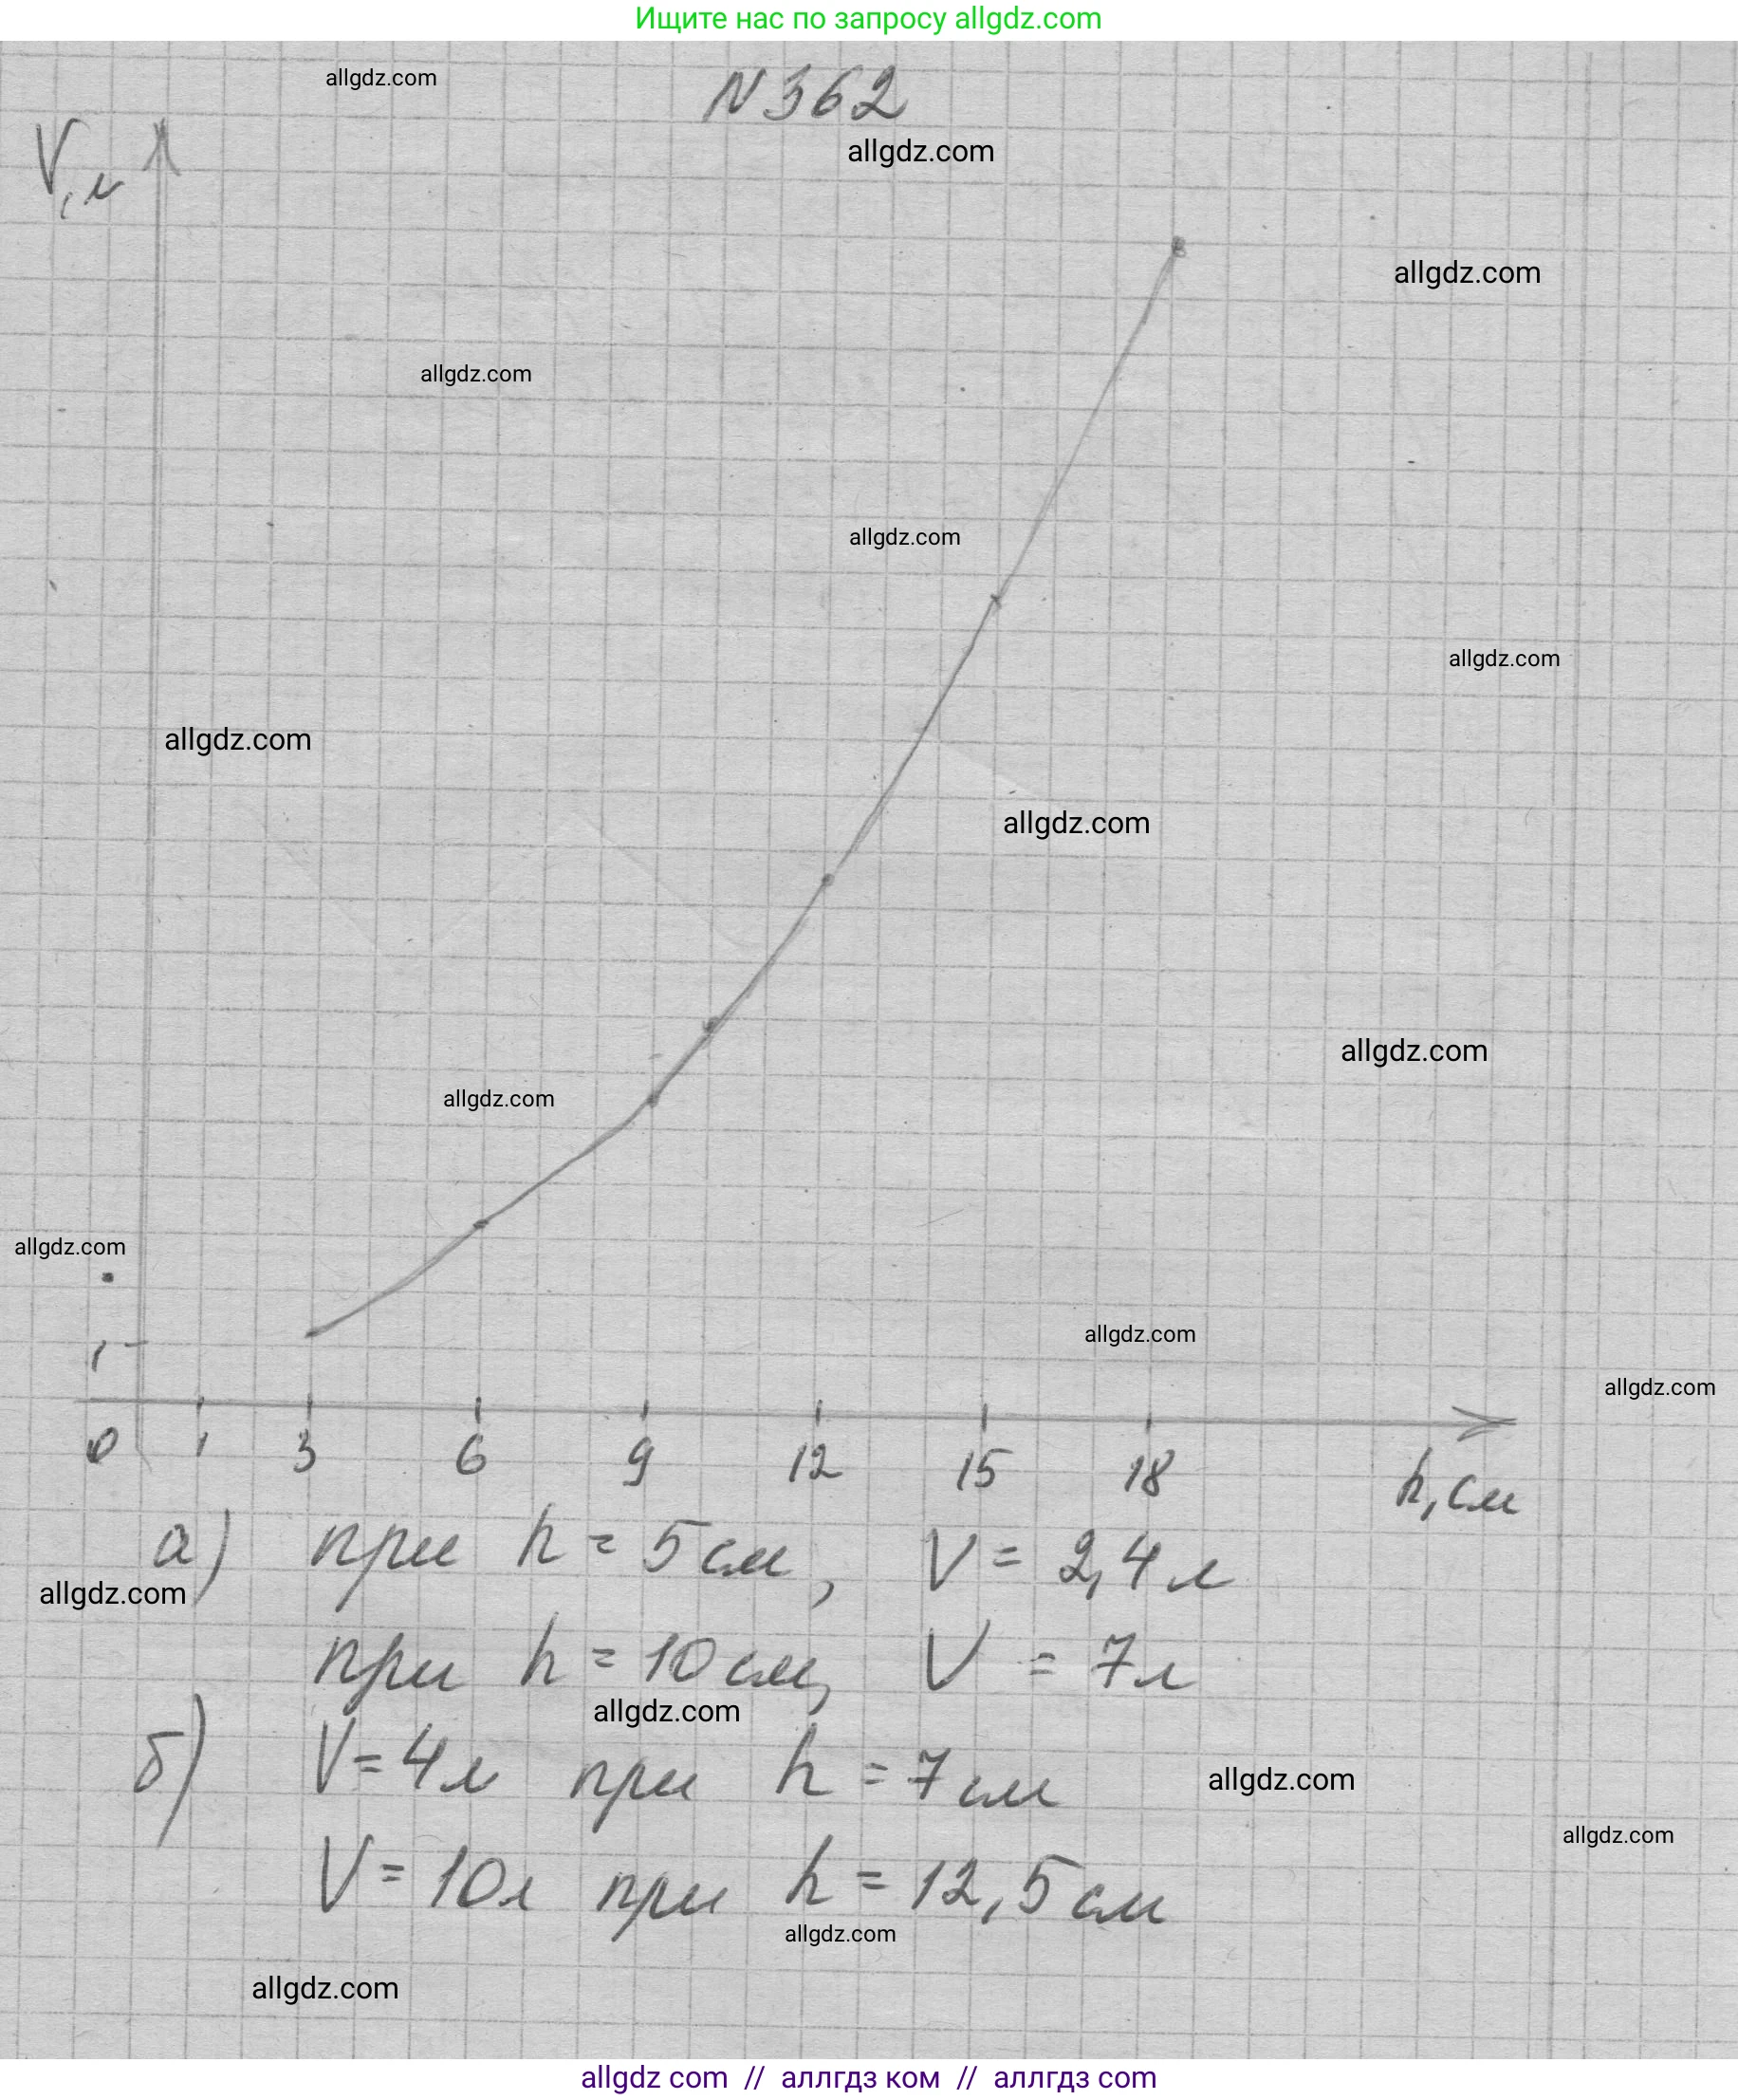 Ищите нас по запросу allgdz.com
allgdz.com
N 362
allgdz.com
V, л
allgdz.com
allgdz.com
allgdz.com
allgdz.com
allgdz.com
allgdz.com
allgdz.com
allgdz.com
allgdz.com
allgdz.com
1
allgdz.com
0 1 3 6 9 12 15 18 h, см
а) при h = 5 см, V = 2,4 л
allgdz.com
при h = 10 см, V = 7 л
allgdz.com
б) V = 4 л при h = 7 см
allgdz.com
allgdz.com
V = 10 л при h = 12,5 см
allgdz.com
allgdz.com
allgdz com // аллгдз ком // аллгдз com